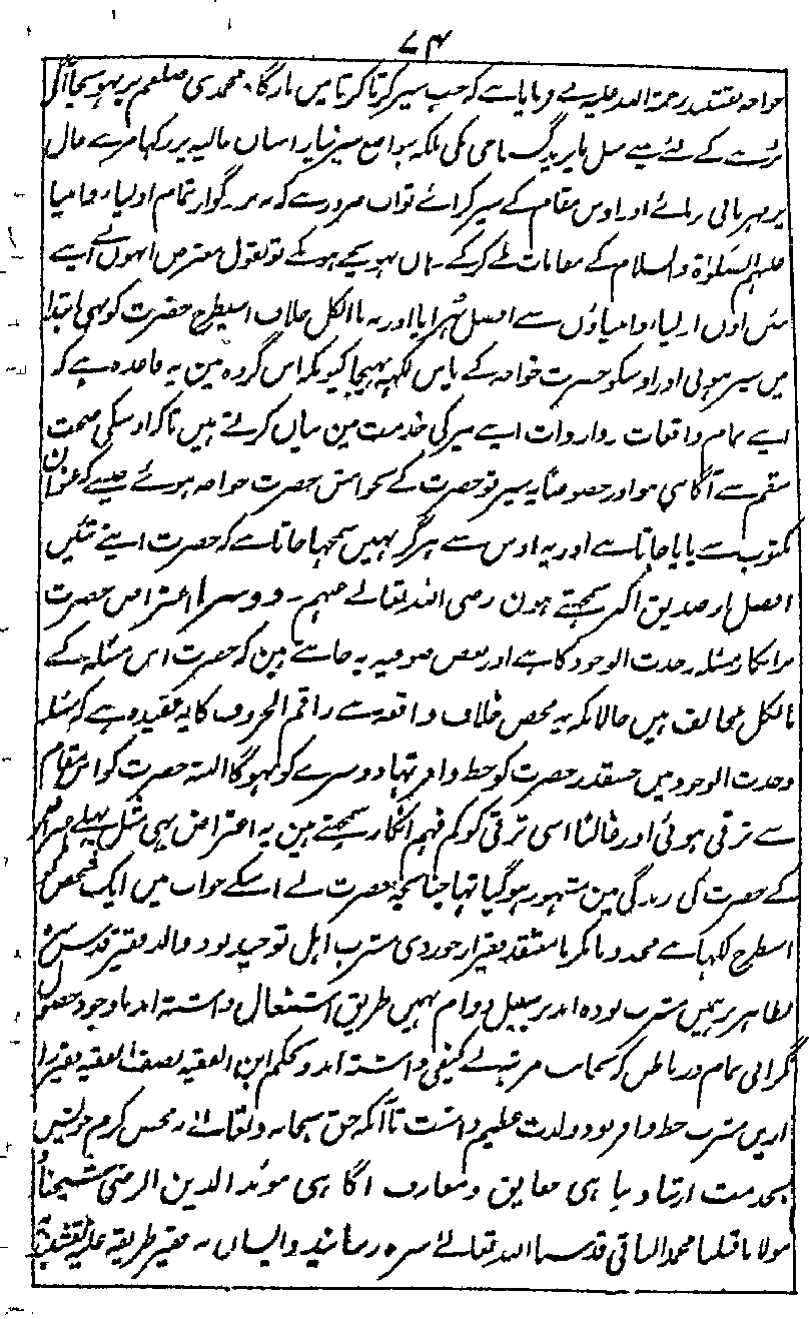 ۷۴
خواجہ نقشبند رحمۃ اللہ علیہ نے فرمایا ہے کہ جب سیر کرتا کرتا میں بارگاہ محمدی صلعم پر پہونچا
کے لئے میں نے مثل بایزید گستاخی نکی بلکہ سر نیاز آستان عالیہ پر رکہا میرے حال
پر مہربانی فرمائے اور اوس مقام کے سیر کرائے تو اب ضرور ہے کہ یہ بزرگوار تمام اولیا و انبیا
علیہم الصلوٰۃ والسلام کے مقامات طے کرکے وہاں پہونچے ہونگے تو بقول معترض انہوں نے اپنے
تئیں اون اولیا و انبیاؤں سے افضل ٹہرایا اور یہ بالکل خلاف اسیطرح حضرت کو بہی ابتدا
میں سیر ہوئی اور اوسکو حضرت خواجہ کے پاس لکہہ بہیجا کیونکہ اس گروہ مین یہ قاعدہ ہے کہ
اپنے تمام واقعات و واردات اپنے پیر کی خدمت مین بیان کرتے ہیں تاکہ اوسکی صحت
سقم سے آگاہی ہو اور خصوصاً یہ سیر تو حضرت کے حضرت خواجہ ہوئے جیسے کہ عنوان
مکتوب سے پایا جاتا ہے اور یہ اوس سے ہرگز نہیں سمجہا جاتا ہے کہ حضرت اپنے تئیں
افضل از صدیق اکبر سمجہتے ہون رضی اللہ تعالے عنہم۔ دوسرا اعتراض حضرت
پر انکار مسئلہ وحدت الوجود کا ہے اور بعض صوفیہ یہ جانتے ہین کہ حضرت اس مسئلہ کے
بالکل مخالف ہیں حالانکہ یہ محض خلاف واقعہ ہے راقم الحروف کا یہ عقیدہ ہے کہ مسئلہ
وحدت الوجود میں جسقدر حضرت کو حظ وافر تہا دوسرے کو کم ہوگا البتہ حضرت کو اس مقام
سے ترقی ہوئی اور غالباً اسی ترقی کو کم فہم انکار سمجہتے ہین یہ اعتراض بہی مثل پہلے اعتراض
کے حضرت کی زندگی مین مشہور ہوگیا تہا چنانچہ حضرت نے اسکے جواب میں ایک شخص کو
اسطرح لکہا ہے مخدوما مکرما معتقد فقیر از خوردی مشرب اہل توحید بود والد فقیر قدس سرہ
بظاہر بر ہمیں مشرب بودہ اند بر سبیل دوام ہمیں طریق اشتغال داشتہ اند باوجود حصول
نگرانی تمام در باطن کہ بجانب مرتبہ بے کیفی داشتہ اند و بحکم ابن الفقیہ نصف الفقیہ فقیر را
ازیں مشرب حظ وافر بود و لذت عظیم داشت تا آنکہ حق سبحانہ و تعالے بمحض کرم خویش
بخدمت ارشاد پناہی حقایق و معارف آگاہی موئد الدین الرضی شیخنا و
مولانا و قبلتنا محمد الباقی قدسنا اللہ تعالے بسرہ رسانید و ایشاں بہ فقیر طریقہ علیہ نقشبندیہ